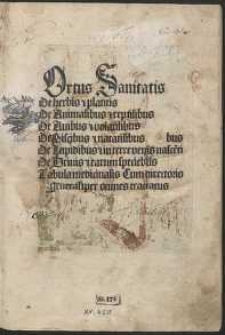 Ortus Sanitatis
De herbis ⁊ plantis
De Animalibus ⁊ reptilibus
De Auibus ⁊ volatilibus
De Piscibus ⁊ natatilibus bus
De Lapidibus ⁊ in terre venis nascen̄
De Urinis ⁊ earum speciebus
Tabula medicinalis Cum directorio
generali per omnes tractatus